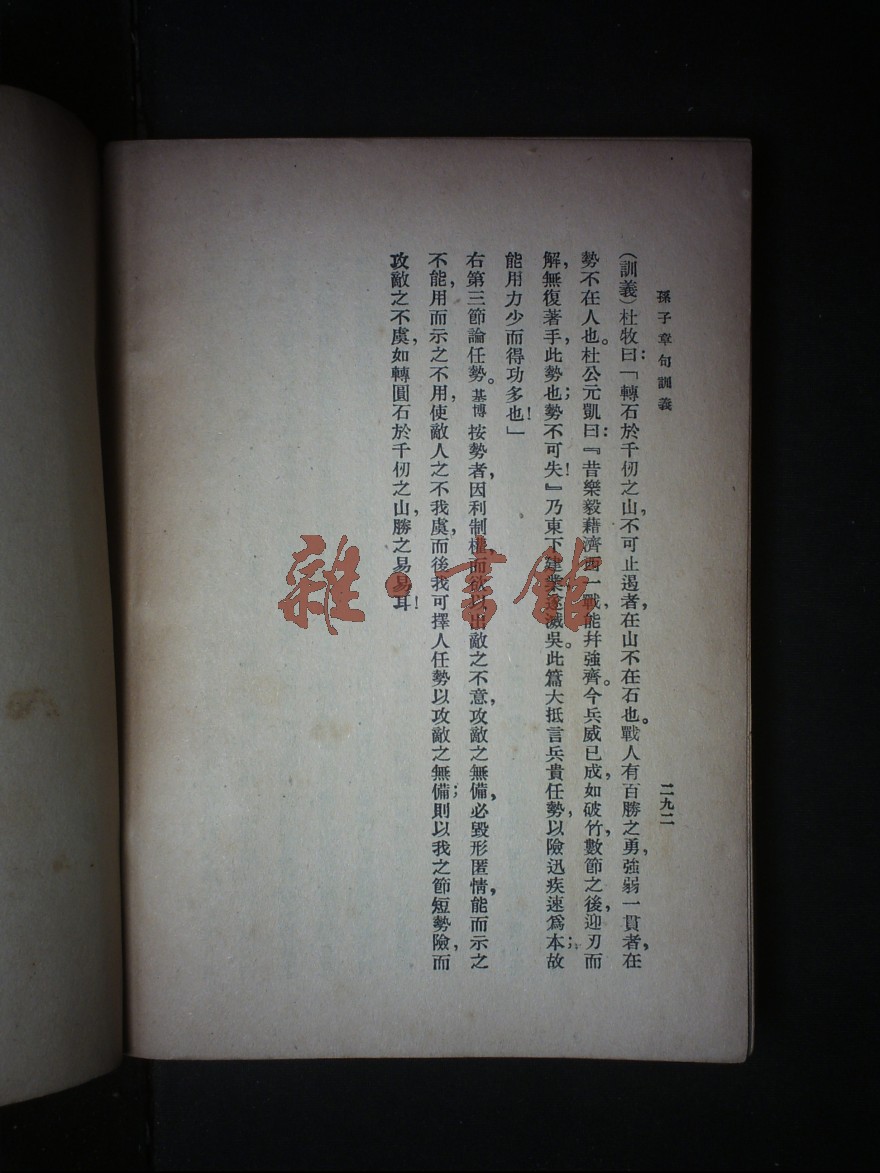 孫子章句訓義
二九二
(訓義)杜牧曰:「轉石於千仞之山,不可止遏者,在山不在石也。戰人有百勝之勇,強弱一貫者,在
勢不在人也。杜公元凱曰:『昔樂毅藉濟西一戰,能幷強齊。今兵威已成,如破竹,數節之後,迎刃而
解,無復著手,此勢也;勢不可失!』乃東下建業,遂滅吳。此篇大抵言兵貴任勢,以險迅疾速爲本;故
能用力少而得功多也!」
右第三節論任勢。基博按勢者,因利制權,而欲以出敵之不意,攻敵之無備,必毀形匿情,能而示之
不能,用而示之不用,使敵人之不我虞,而後我可擇人任勢以攻敵之無備;則以我之節短勢險,而
攻敵之不虞,如轉圓石於千仞之山,勝之易易耳!
雜·書館